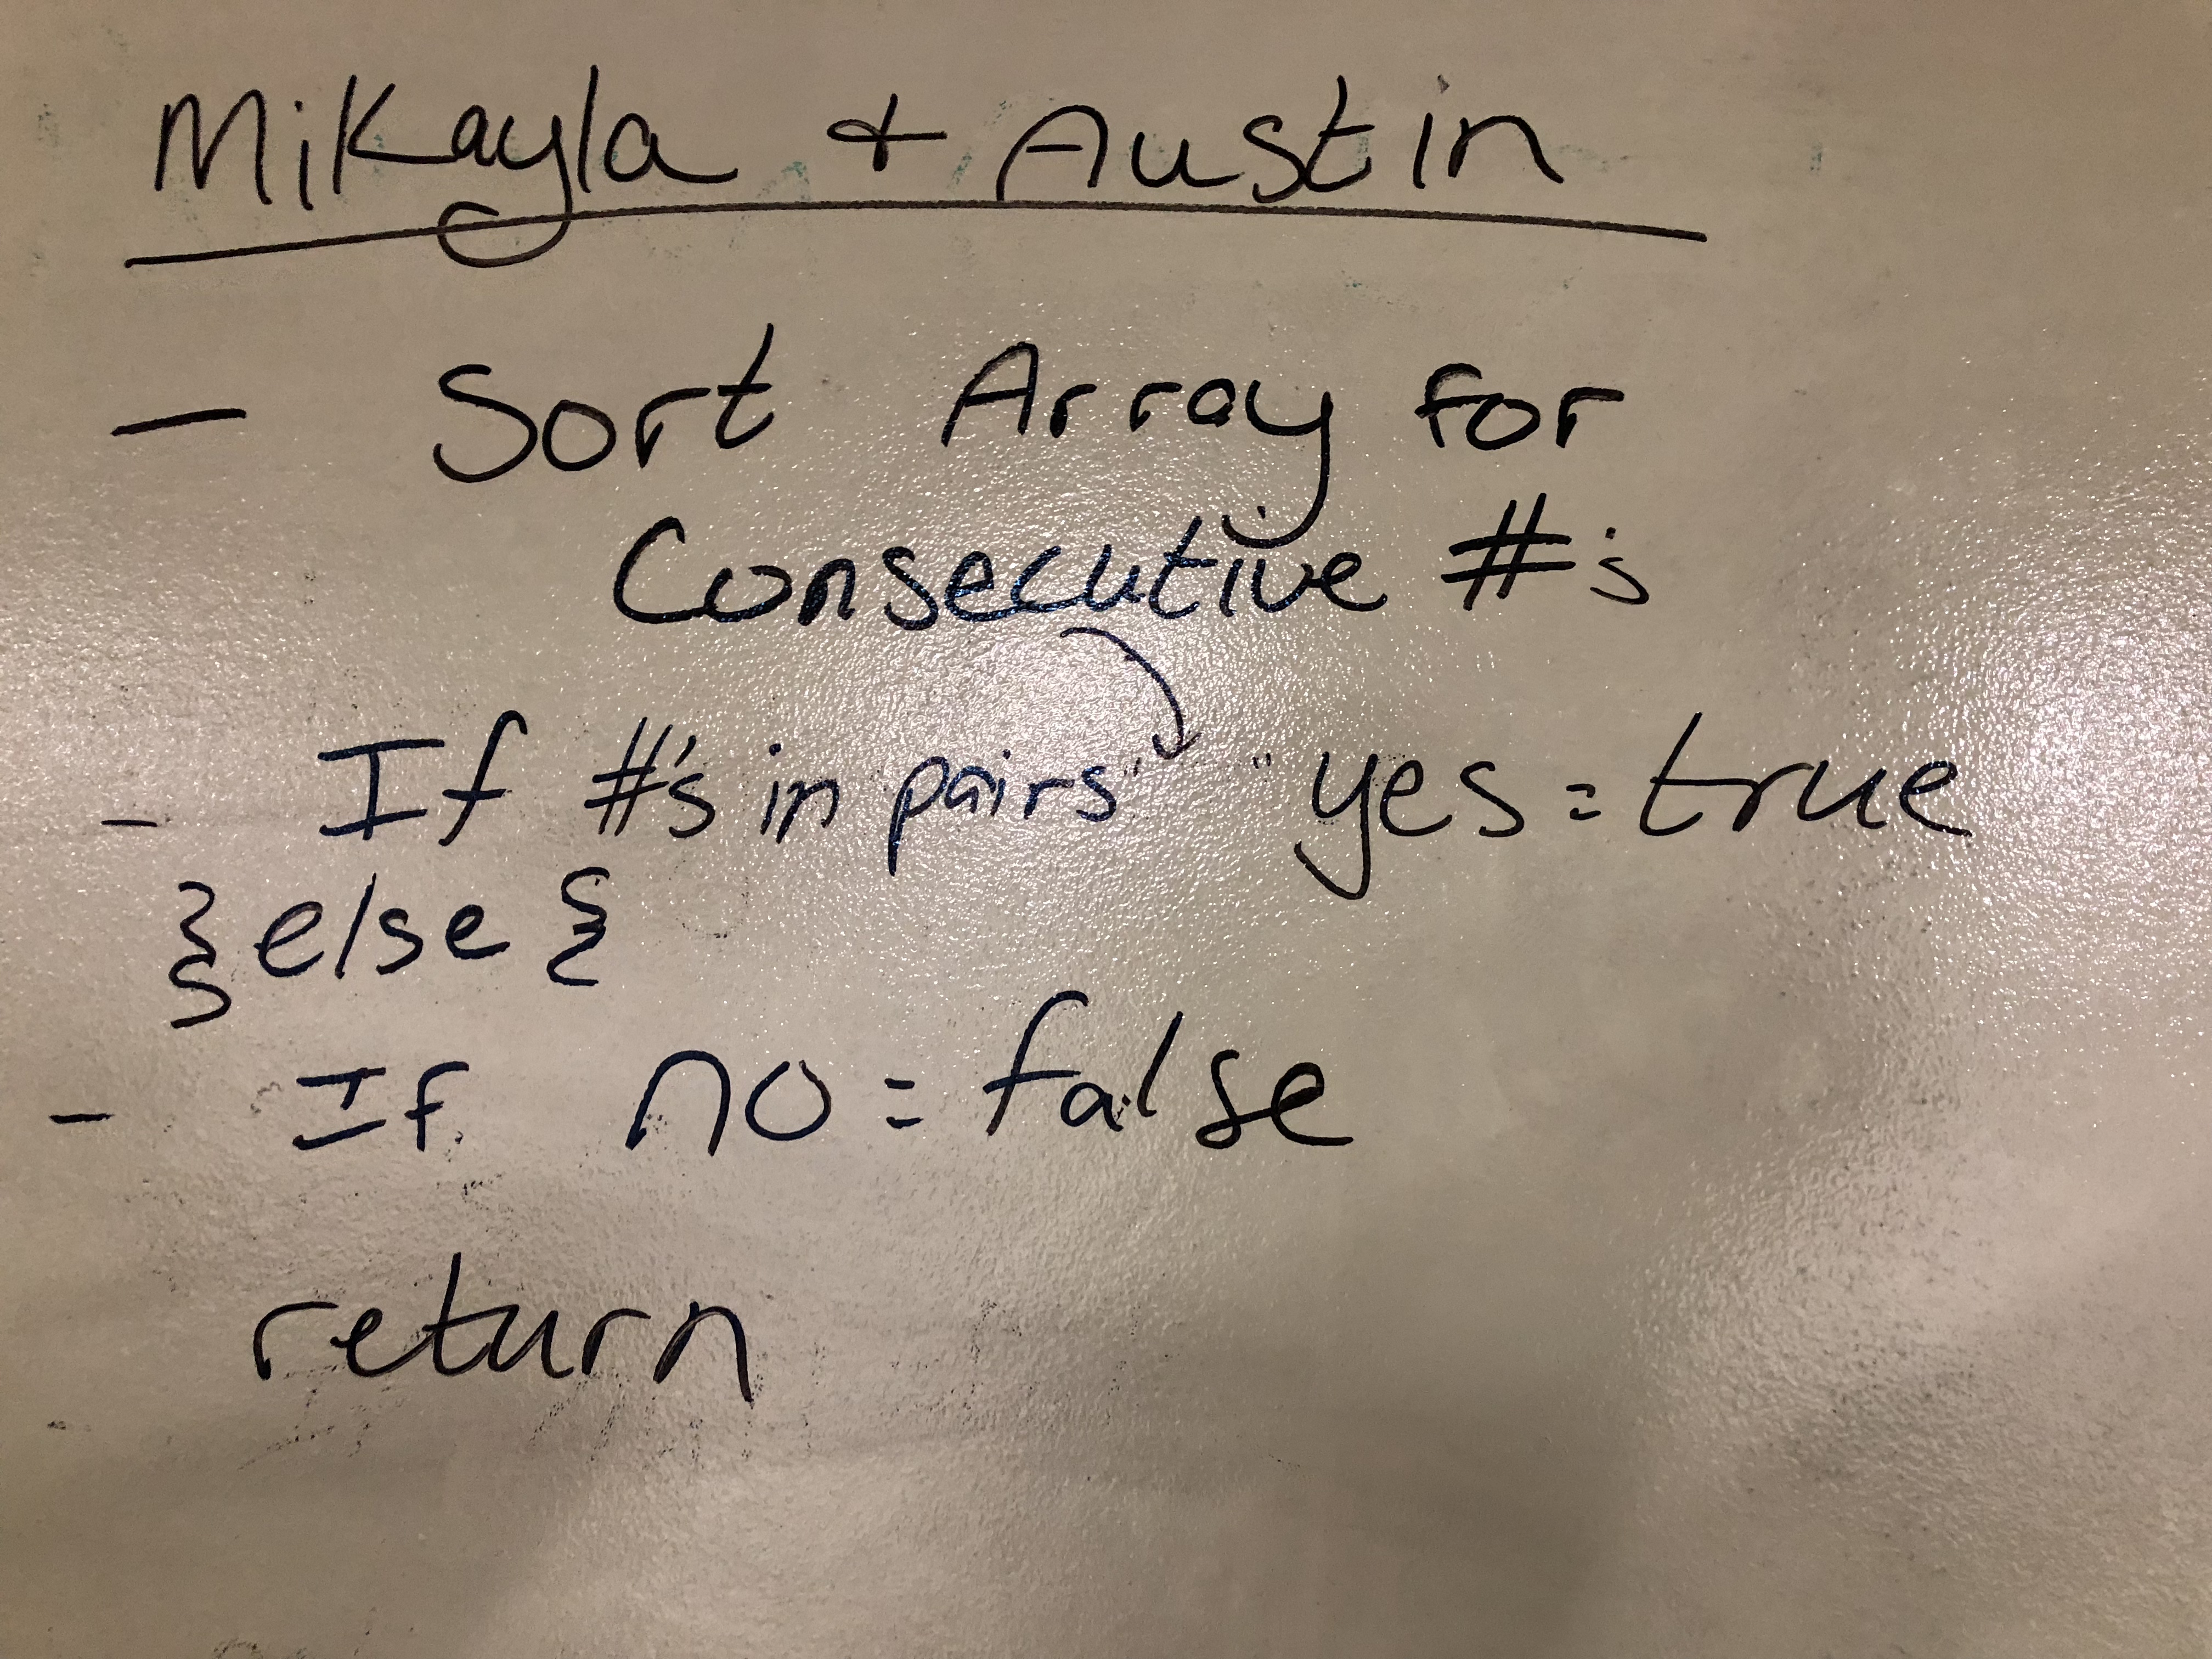 Mikayla + Austin
- Sort Array for
Consecutive #'s
- If #'s in pairs" " yes = true
} else {
- If no = false
return